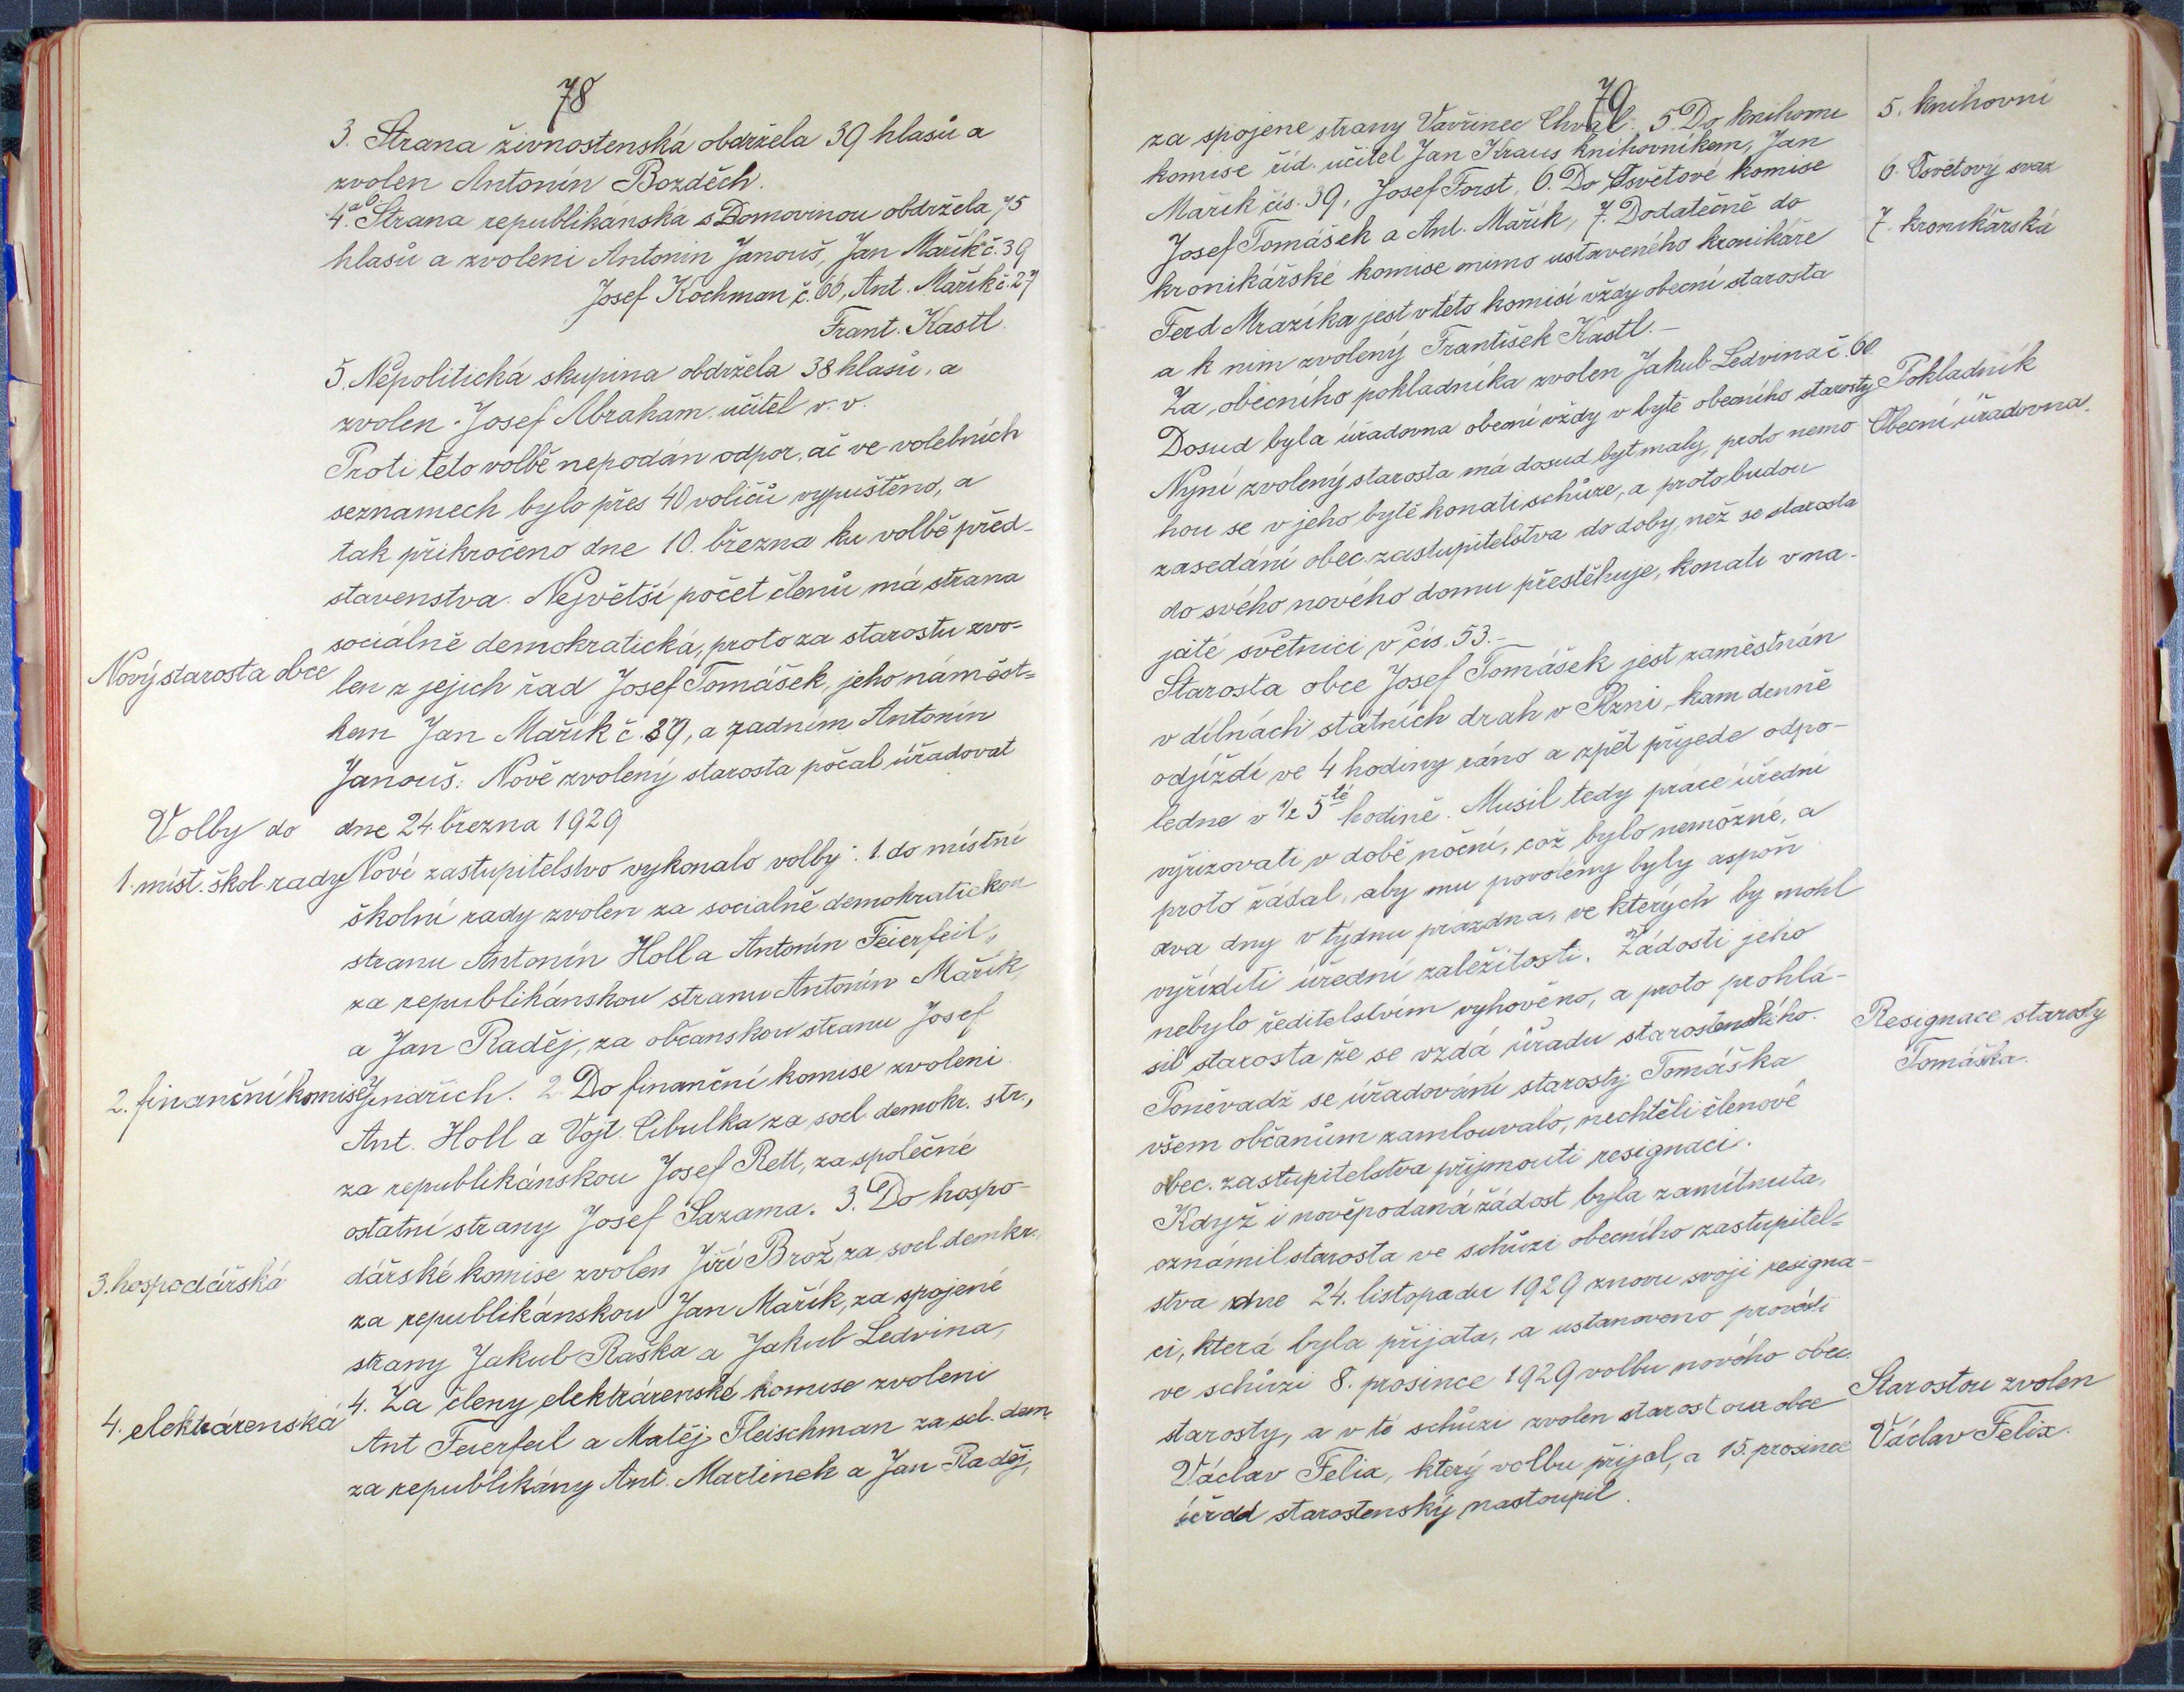 78
3. Strana živnostenská obdržela 39 hlasů a
zvolen Antonín Bozděch.
4. a b Strana republikánská s Domovinou obdržela 75
hlasů a zvoleni Antonin Janouš, Jan Mařík č. 39
Josef Kochman č. 66, Ant. Mařík č. 27
Frant. Kastl.
5. Nepolitická skupina obdržela 38 hlasů, a
zvolen Josef Abraham učitel v. v.
Proti této volbě nepodán odpor, ač ve volebních
seznamech bylo přes 40 voličů vypuštěno, a
tak přikročeno dne 10. března ku volbě před-
stavenstva. Největší počet členů má strana
sociálně demokratická, proto za starostu zvo-
Nový starosta obce
len z jejich řad Josef Tomášek, jeho náměst-
kem Jan Mařík č. 39, a radním Antonín
Janouš. Nově zvolený starosta počal úřadovat
Volby do
dne 24. března 1929
1. míst. škol. rady
Nové zastupitelstvo vykonalo volby: 1. do místní
školní rady zvolen za socialně demokratickou
stranu Antonín Holl a Antonín Feierfeil,
za republikánskou stranu Antonín Mařík,
a Jan Raděj, za občanskou stranu Josef
2. finanční komise
Jindřich. 2. Do finanční komise zvoleni
Ant. Holl a Vojt. Cibulka za socl. demokr. str.,
za republikánskou Josef Rett, za společné
ostatní strany Josef Sazama. 3. Do hospo-
3. hospodářská
dářské komise zvolen Jiří Brož za socl. demkr.,
za republikánskou Jan Mařík, za spojené
strany Jakub Raška a Jakub Ledvina,
4. elektrárenská
4. Za členy elektrárenské komise zvoleni
Ant Feierfeil a Matěj Fleischman za scl. dem.
za republikány Ant. Martínek a Jan Raděj,
79
za spojené strany Vavřinec Chval. 5. Do knihovní
5. knihovní
komise říd. učitel Jan Kraus knihovníkem, Jan
Mařík čís. 39, Josef Forst, 6. Do Osvětové komise
6. Osvětový svaz
Josef Tomášek a Ant. Mařík, 7. Dodatečně do
7. kronikářská
kronikářské komise mimo ustaveného kronikáře
Ferd Mrazíka jest v této komisi vždy obecní starosta
a k nim zvolený František Kastl.-
Za obecního pokladníka zvolen Jakub Ledvina č. 60
Pokladník
Dosud byla úřadovna obecní vždy v bytě obecního starosty
Obecní úřadovna.
Nyní zvolený starosta má dosud byt malý, proto nemo-
hou se v jeho bytě konati schůze, a proto budou
zasedání obec. zastupitelstva do doby, než se starosta
do svého nového domu přestěhuje, konati v na-
jaté světnici v čís. 53.-
Starosta obce Josef Tomášek jest zaměstnán
v dílnách státních drah v Plzni, kam denně
odjíždí ve 4 hodiny ráno a zpět přijede odpo-
ledne v 1/2 5té hodině. Musil tedy práce úřední
vyřizovati v době noční, což bylo nemožné, a
proto žádal, aby mu povoleny byly aspoň
dva dny v týdnu prázdna, ve kterých by mohl
vyříditi úřední záležitosti. Žádosti jeho
nebylo ředitelstvím vyhověno, a proto prohlá-
sil starosta že se vzdá úřadu starostenského.
Resignace starosty
Tomáška.
Poněvadž se úřadování starosty Tomáška
všem občanům zamlouvalo, nechtěli členové
obec. zastupitelstva přijmouti resignaci.
Když i nově podaná žádost byla zamítnuta,
oznámil starosta ve schůzi obecního zastupitel-
stva dne 24. listopadu 1929 znovu svoji resigna-
ci, která byla přijata, a ustanoveno provésti
ve schůzi 8. prosince 1929 volbu nového obec.
starosty, a v té schůzi zvolen starostou obce
Starostou zvolen
Václav Felix, který volbu přijal, a 15. prosince
Václav Felix.
úřad starostenský nastoupil.